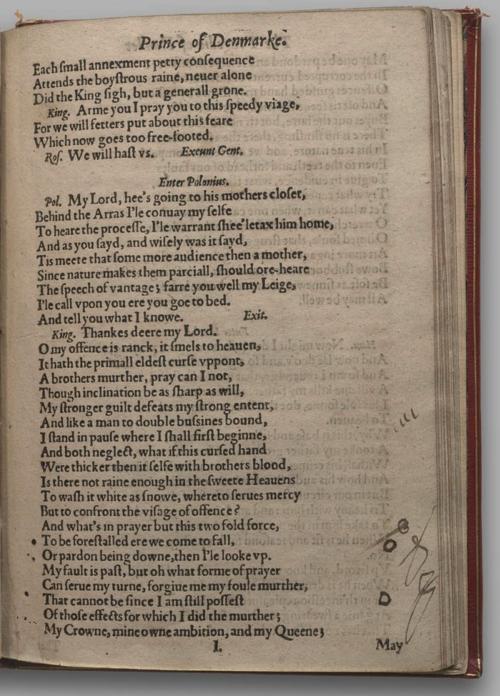 Prince of Denmarke.
Each ſmall annexment petty conſequence
Attends the boyſtrous raine, neuer alone
Did the King ſigh, but a generall grone.
King. Arme you I pray you to this ſpeedy viage,
For we will fetters put about this feare
Which now goes too free-footed.
Roſ. We will haſt vs. Exeunt Gent.
Enter Polonius.
Pol. My Lord, hee's going to his mothers cloſet,
Behind the Arras I'le conuay my ſelfe
To heare the proceſſe, I'le warrant ſhee'letax him home,
And as you ſayd, and wiſely was it ſayd,
Tis meete that ſome more audience then a mother,
Since nature makes them parciall, ſhould ore-heare
The ſpeech of vantage; farre you well my Leige,
I'le call vpon you ere you goe to bed.
And tell you what I knowe. Exit.
King. Thankes deere my Lord.
O my offence is ranck, it ſmels to heauen,
It hath the primall eldeſt curſe vppont,
A brothers murther, pray can I not,
Though inclination be as ſharp as will,
My ſtronger guilt defeats my ſtrong entent,
And like a man to double buſsines bound,
I ſtand in pauſe where I ſhall firſt beginne,
And both neglect, what if this curſed hand
Were thicker then it ſelfe with brothers blood,
Is there not raine enough in the ſweete Heauens
To waſh it white as ſnowe, whereto ſerues mercy
But to confront the viſage of offence?
And what's in prayer but this two fold force,
To be foreſtalled ere we come to fall,
Or pardon being downe, then I'le looke vp.
My fault is paſt, but oh what forme of prayer
Can ſerue my turne, forgiue me my foule murther,
That cannot be ſince I am ſtill poſſeſt
Of thoſe effects for which I did the murther;
My Crowne, mine owne ambition, and my Queene;
I. May